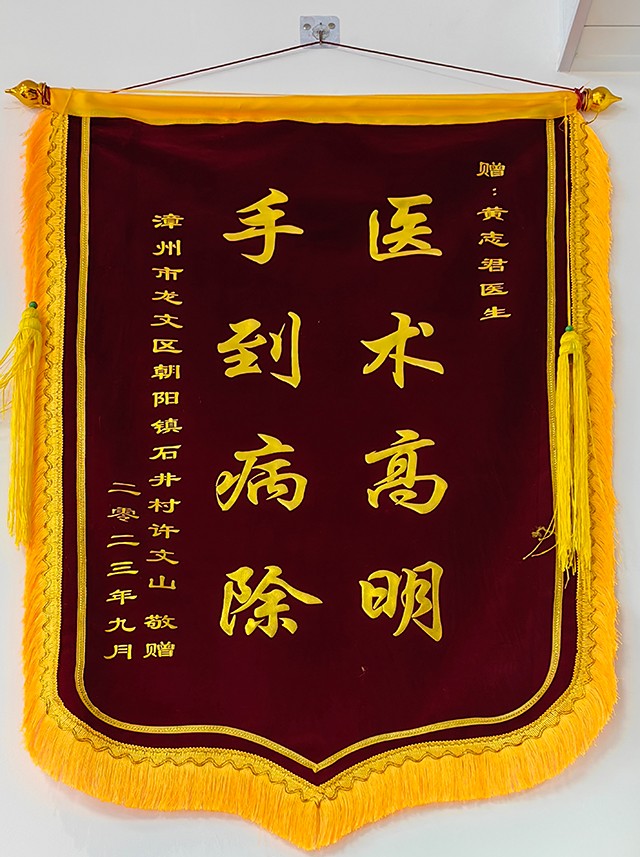 赠：黄志君医生
医术高明
手到病除
漳州市龙文区朝阳镇石井村许文山 敬赠
二零二三年九月